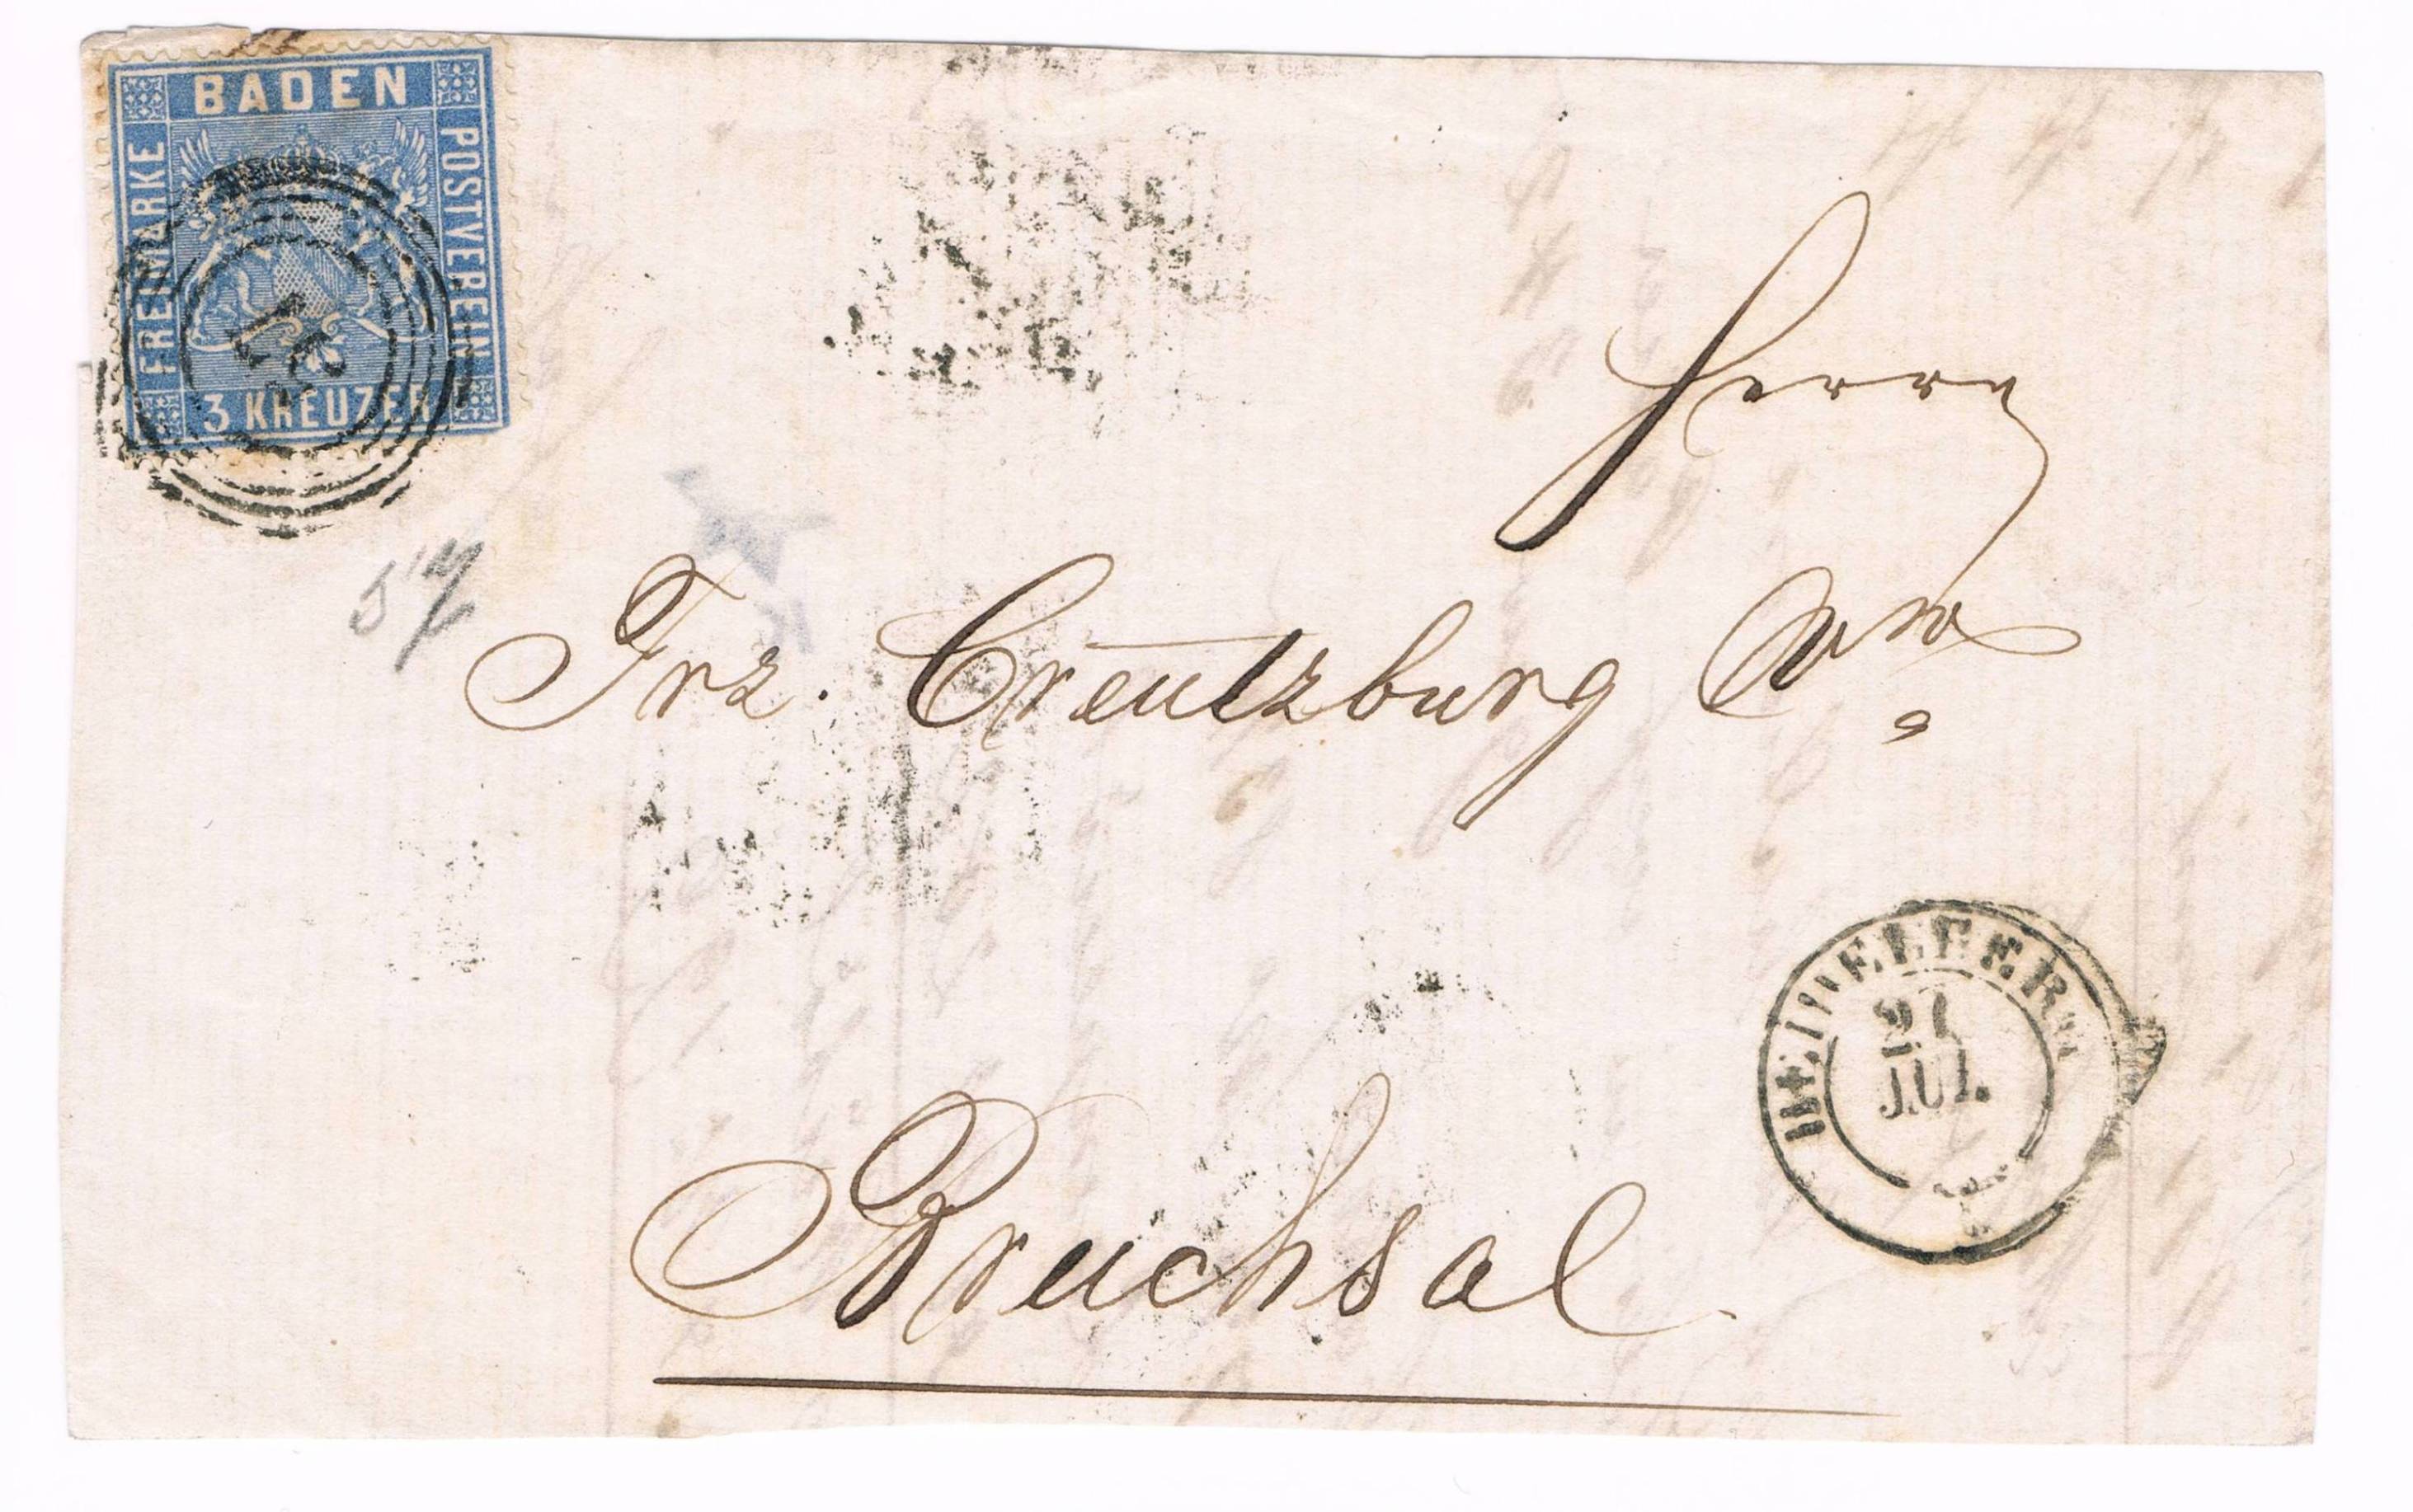 BADEN
FREIMARKE
POSTVEREIN
3 KREUZER
57
Herrn
Frz. Creutzburg
Bruchsal
HEIDELBERG
21
JUL.